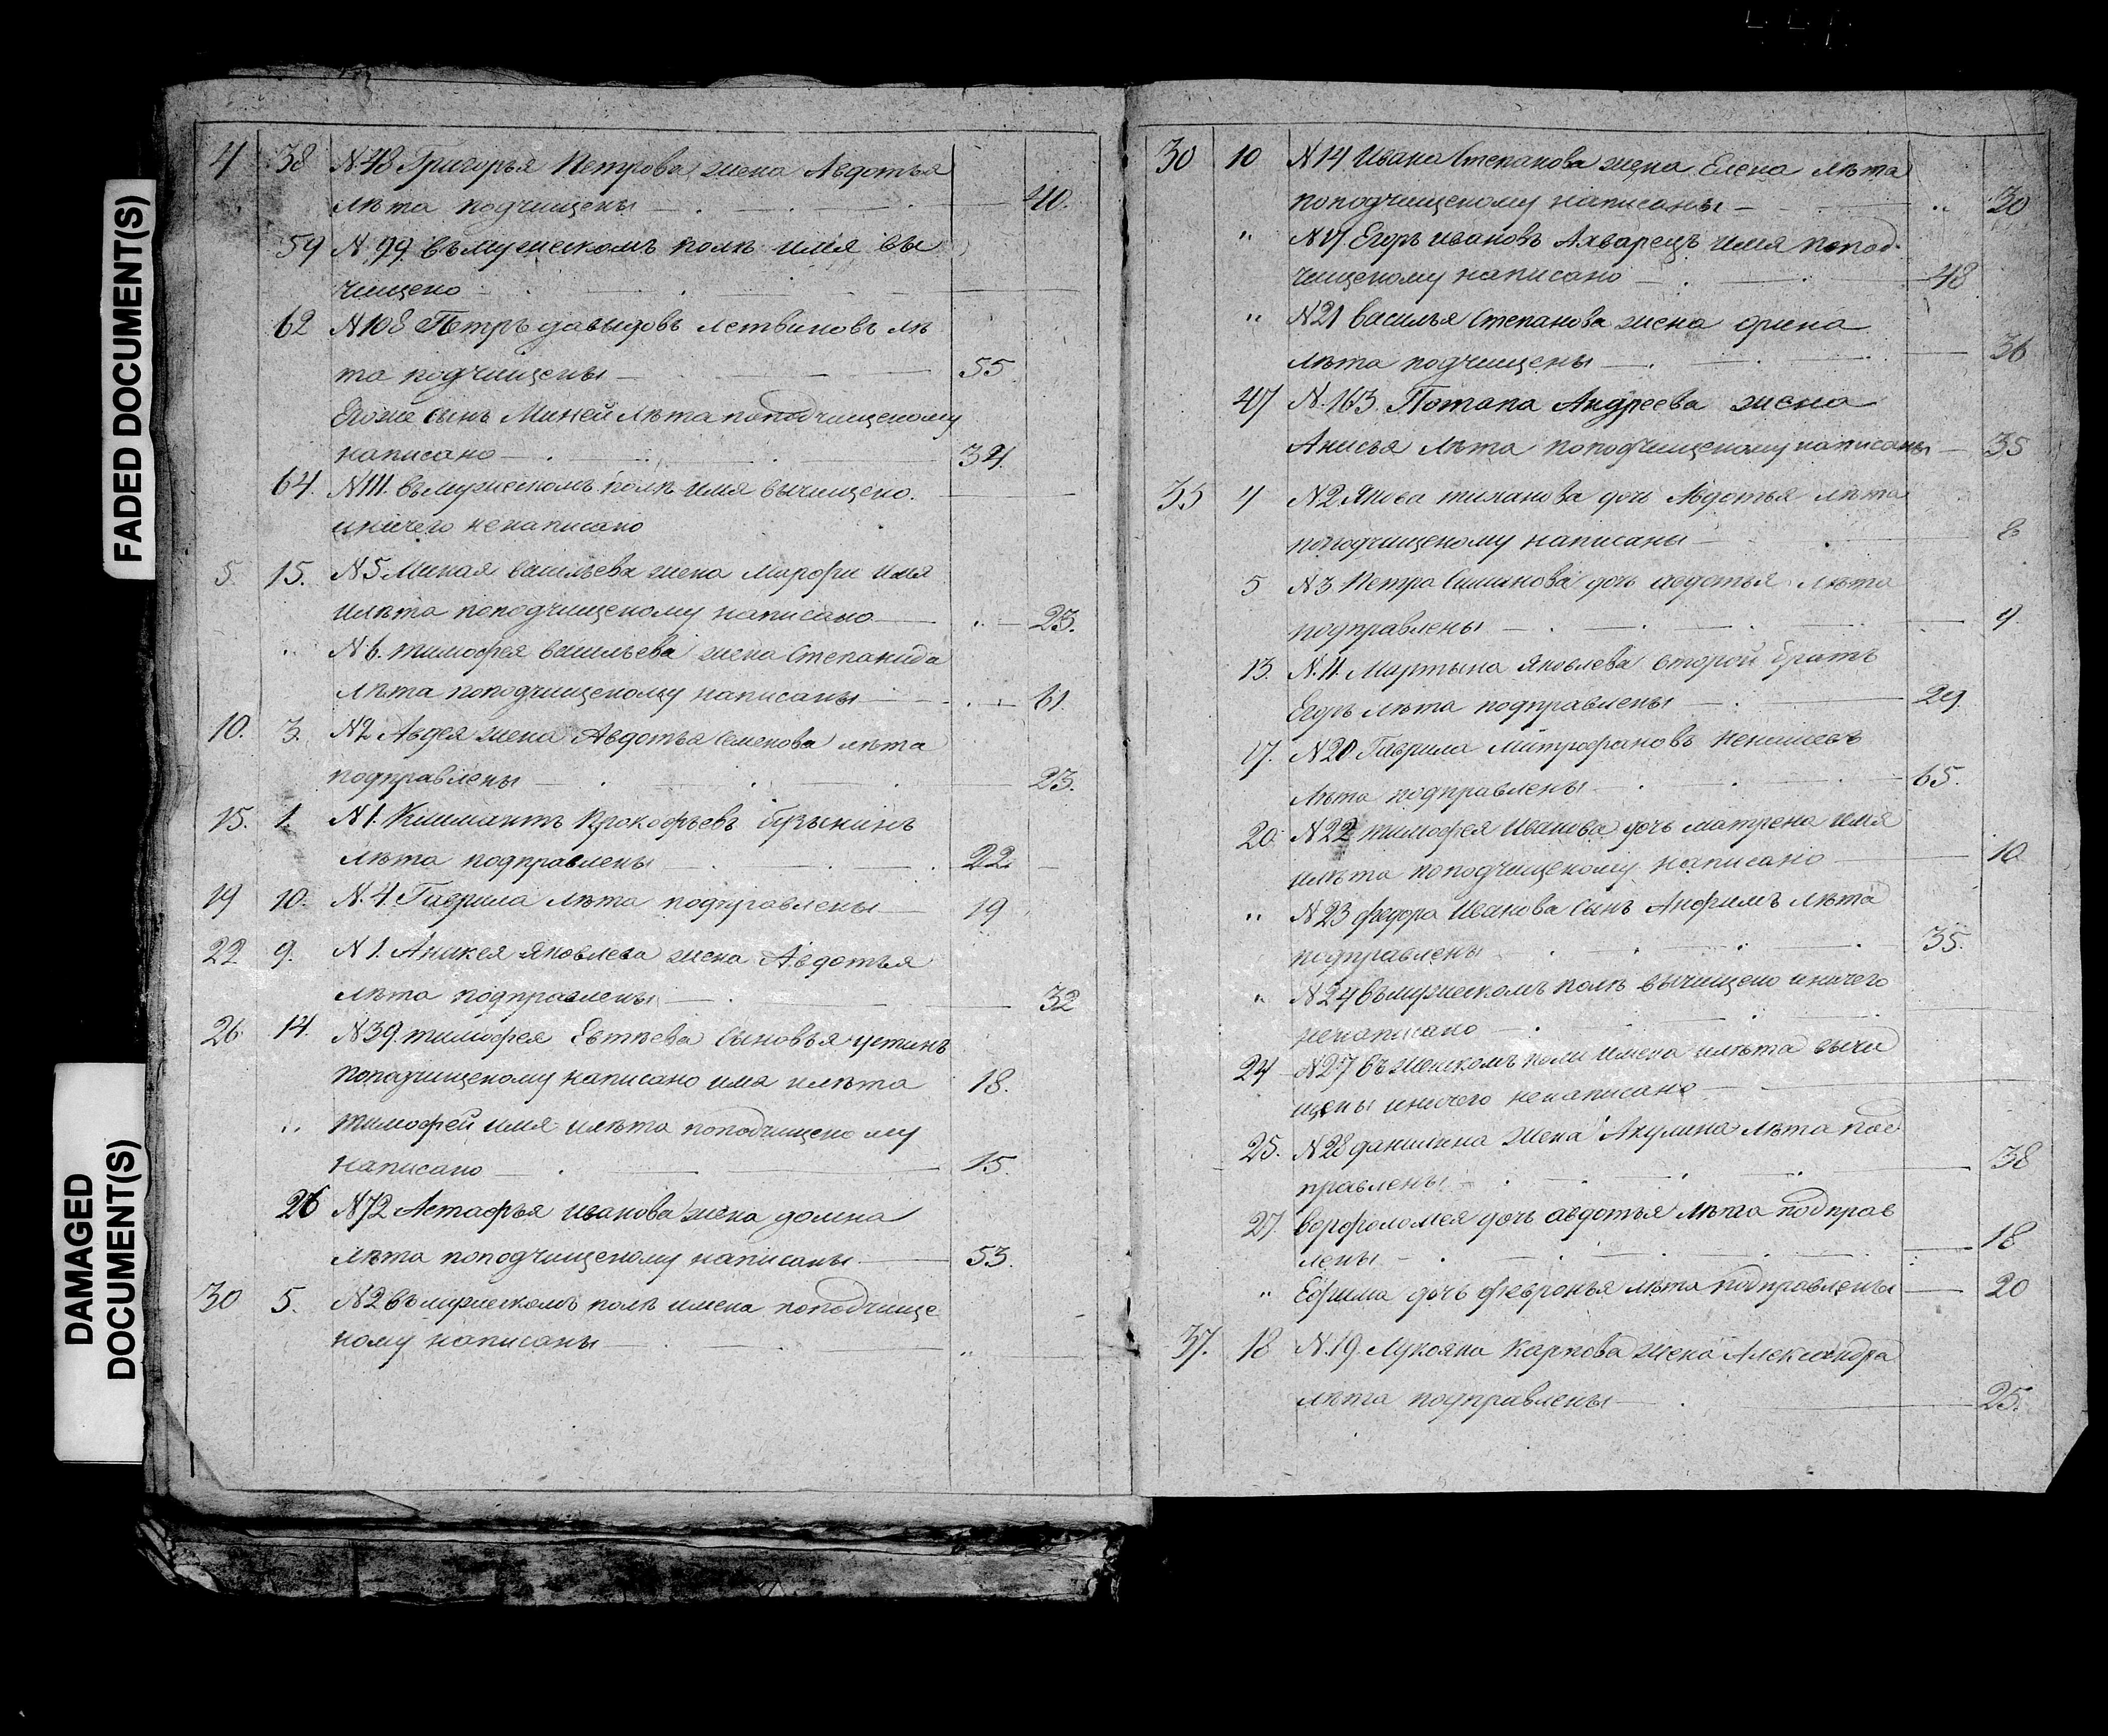 FADED DOCUMENT(S)
DAMAGED
DOCUMENT(S)
4 38 N.48 Григорья Петрова жена Авдотья
лѣта подчищены 40.
59 N.99 въ мужескомъ полѣ имя вы
чищено
62 N108 Петръ давыдовъ летвиновъ лѣ
та подчищены 55
Егоже сынъ Миней лѣта поподчищеному
написано 34.
64. N111. въ мужескомъ полѣ имя вычищено.
иничего ненаписано
5 15. N5 Миная васильева жена Марфы имя
илѣта поподчищеному написано „ 23.
„ N6. тимофея васильева жена Степанида
лѣта поподчищеному написаны 61.
10. 3. N2 Авдея жена Авдотья семенова лѣта
подправлены 23.
15. 1. N1. Прокофьевъ
лѣта подправлены 22.
19 10. N.4. Гаврила лѣта подправлены 19
22 9. N1. Аникея яковлева жена Авдотья
лѣта подправлены 32
26. 14. N39. тимофея Евтѣева сыновья устинъ
поподчищеному написано имя илѣта 18.
„ тимофей имя илѣта поподчищеному
написано 15.
26 N72 Астафья иванова жена домна
лѣта поподчищеному написаны 53.
30 5. N2 въ мужескомъ полѣ имена поподчище
ному написаны „
30 10 N14 Ивана Степанова жена Елена лѣта
поподчищеному написаны „ 30
„ N17 Егоръ ивановъ имя попод-
чищеному написано 48
„ N21 василья Степанова жена орина
лѣта подчищены 36
47 N.163. Потапа Андреева жена
Анисья лѣта поподчищеному написаны 35
35 4 N2 Якова дочь Авдотья лѣта
поподчищеному написаны 8
5 N3. Петра дочь авдотья лѣта
подправлены 9.
13. N.11. Мартына яковлева второй братъ
Егоръ лѣта подправлены 29.
17. N20. Гаврила митрофановъ
лѣта подправлены 65.
20. N22 тимофея Иванова дочь матрена имя
илѣта поподчищеному написано 10
„ N23 федора Иванова сынъ Анфимъ лѣта
подправлены 35.
„ N24 въ мужескомъ полѣ вычищено иничего
ненаписано
24 N27 въ женскомъ поли имена илѣта вычи
щены иничего ненаписано
25. N28 данилина жена Акулина лѣта под
правлены 38
27. ворфоломея дочь авдотья лѣта подправ
лены 18
„ Ефима дочь февронья лѣта подправлены 20
37. 18 N.19. Лукояна Карпова жена Александра
лѣта подправлены 25.